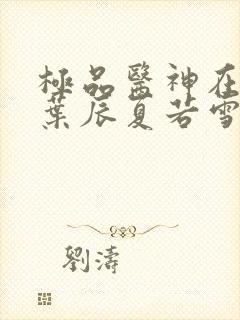 極品醫神在
葉辰夏若雪
劉濤